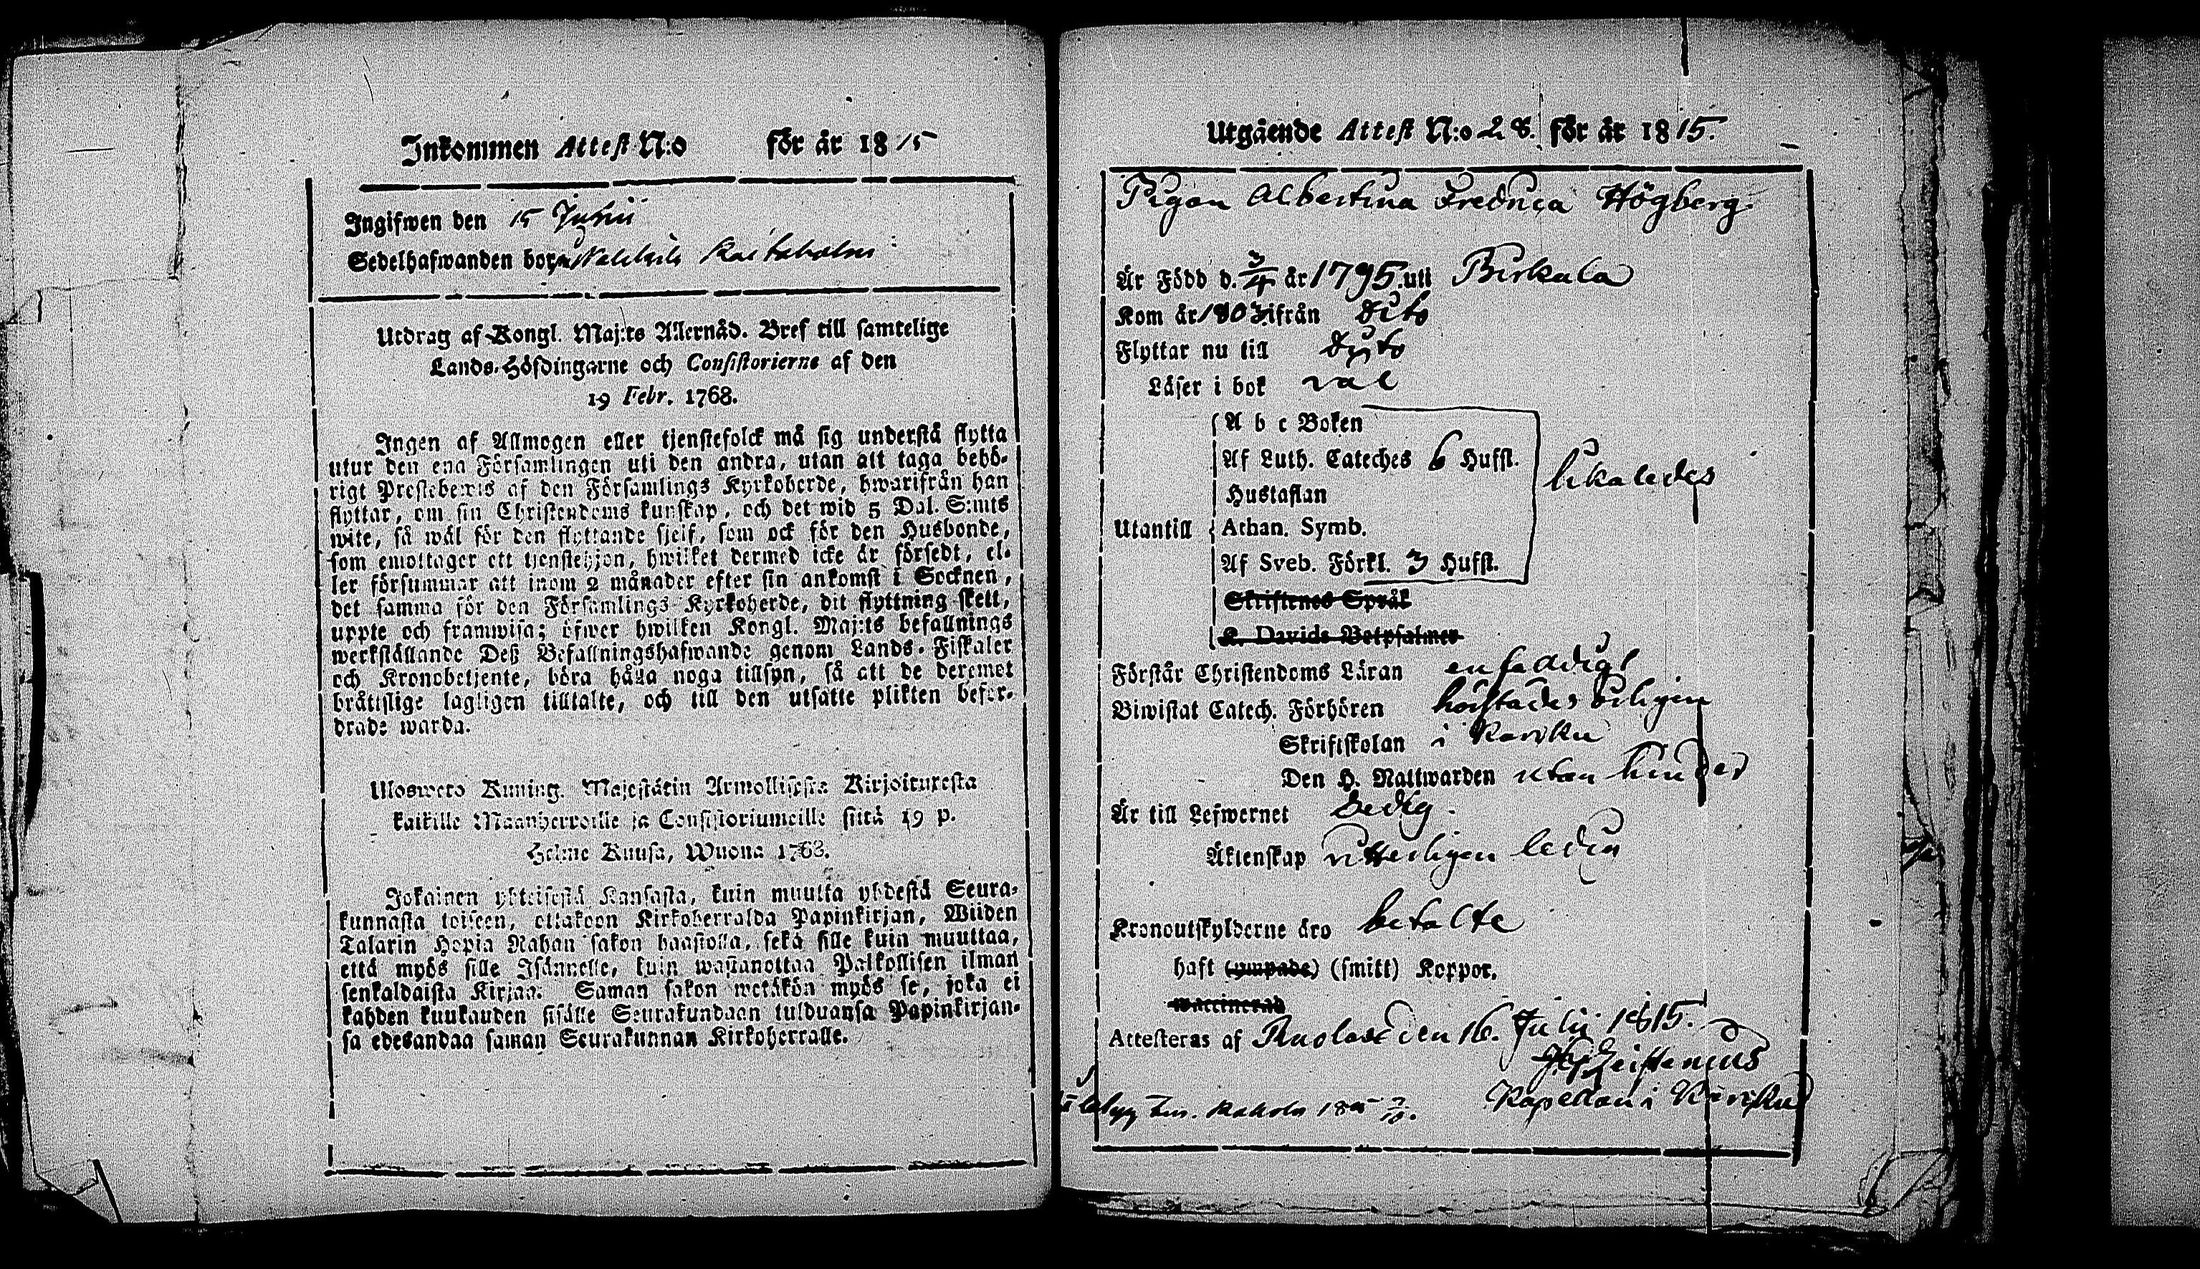 Inkommen Attest N:o för år 1815
Ingifwen den 15 Junii
Sedelhafwanden bor
Utdrag af Kongl. Maj:ts Allernåd. Bref till samtelige
Lands-Höfdingarne och Consistorierne af den
19 Febr. 1768.
Ingen af Allmogen eller tjenstefolck må sig understå flytta
utur den ena Församlingen uti den andra, utan att taga behö-
rigt Prestebewis af den Församlings Kyrkoherde, hwarifrån han
flyttar, om sin Christendoms kunskap, och det wid 5 Dal. S:mts
wite, så wäl för den flyttande sjelf, som ock för den Husbonde,
som emottager ett tjenstehjon, hwilket dermed icke är försedt, el-
ler försummar att inom 2 månader efter sin ankomst i Socknen,
det samma för den Församlings Kyrkoherde, dit flyttning skett,
uppte och framwisa; öfwer hwilken Kongl. Maj:ts befallnings
werkställande Deß Befallningshafwande genom Lands-Fiskaler
och Kronobetjente, böra hålla noga tillsyn, så att de deremot
bråttslige lagligen tilltalte, och till den utsatte plikten befor-
drade warda.
Uloswero Kuning. Majestätin Armollisesta Kirjoituxesta
kaikille Maanherroille ja Consistoriumeille siitä 19 p.
Helme Kuusa, Wuona 1768.
Jokainen yhteisestä Kansasta, kuin muutta yhdestä Seura-
kunnasta toiseen, ottakoon Kirkoherralda Papinkirjan, Wiiden
Talarin Hopia Rahan sakon haastolla, sekä sille kuin muuttaa,
että myös sille Isännelle, kuin wastanottaa Palkollisen ilman
senkaldaista Kirjaa. Saman sakon wetäkön myös se, joka ei
kahden kuukauden sisälle Seurakundaan tulduansa Papinkirjan-
sa edesandaa saman Seurakunnan Kirkoherralle.
Utgående Attest N:o 28. för år 1815.
Pigan Albertina Fredrica Högberg.
Är Född d. 3/4 år 1795. uti Birkala
Kom år 1803 ifrån dito
Flyttar nu till dito
Läser i bok väl
A b c Boken
Af Luth. Cateches 6 Hufst.
Hustaflan
likaledes
Utantill Athan. Symb.
Af Sveb. Förkl. 3 Hufst.
Skriftenes Språk
K. Davids Botpsalmer
Förstår Christendoms Läran enfaldigt
Biwistat Catech. Förhören
Skriftskolan i
Den H. Nattwarden utan hinder
Är till Lefwernet Sedig.
Äktenskap veterligen ledig
Kronoutskylderne äro betalte
haft (ympade) (smitt) Koppor.
waccinerad
Attesteras af den 16. Julii 1815.
Kapellan i